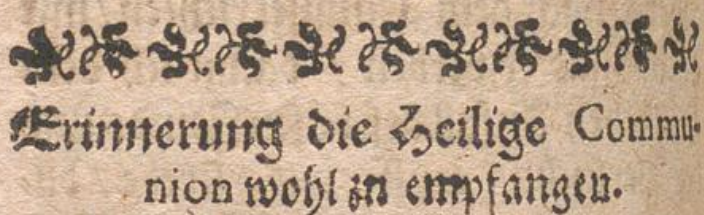 Erinnerung die Heilige Commu-
nion wohl zu empfangen.